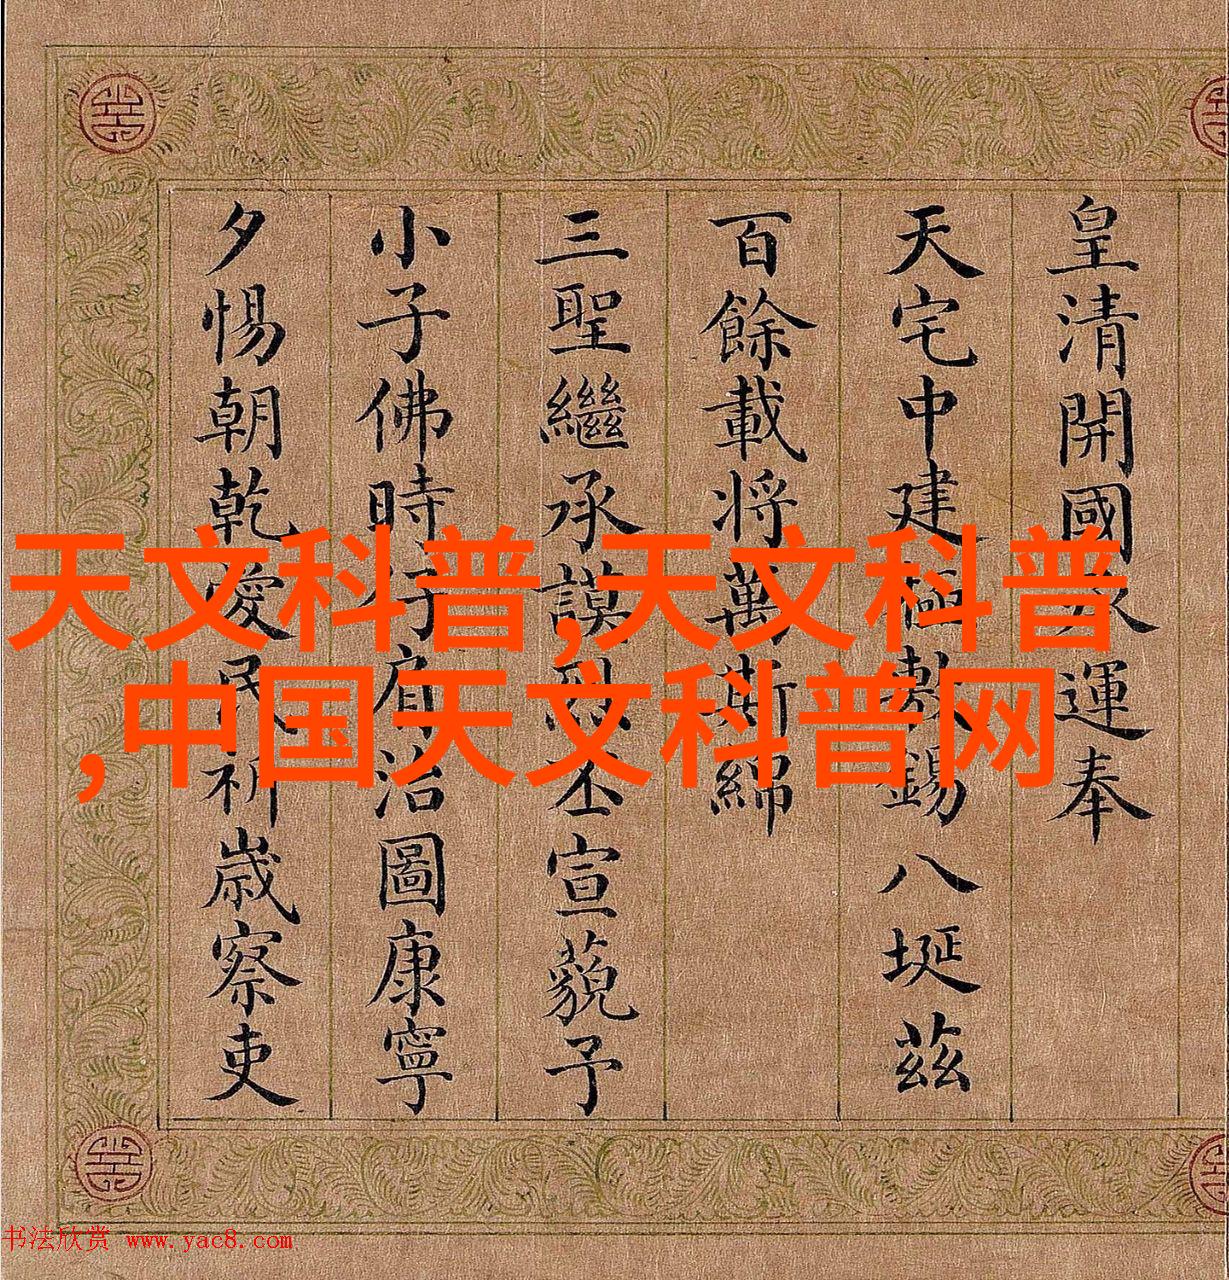 皇清開國運奉
天宅中建極敷錫八埏茲
百餘載将萬斯綿
三聖繼承謨烈丕宣藐予
小子佛時仔肩治圖康寧
夕惕朝乾愛民祈歲察吏
天文科普,天文科普
,中国天文科普网
书法欣赏 www.yac8.com